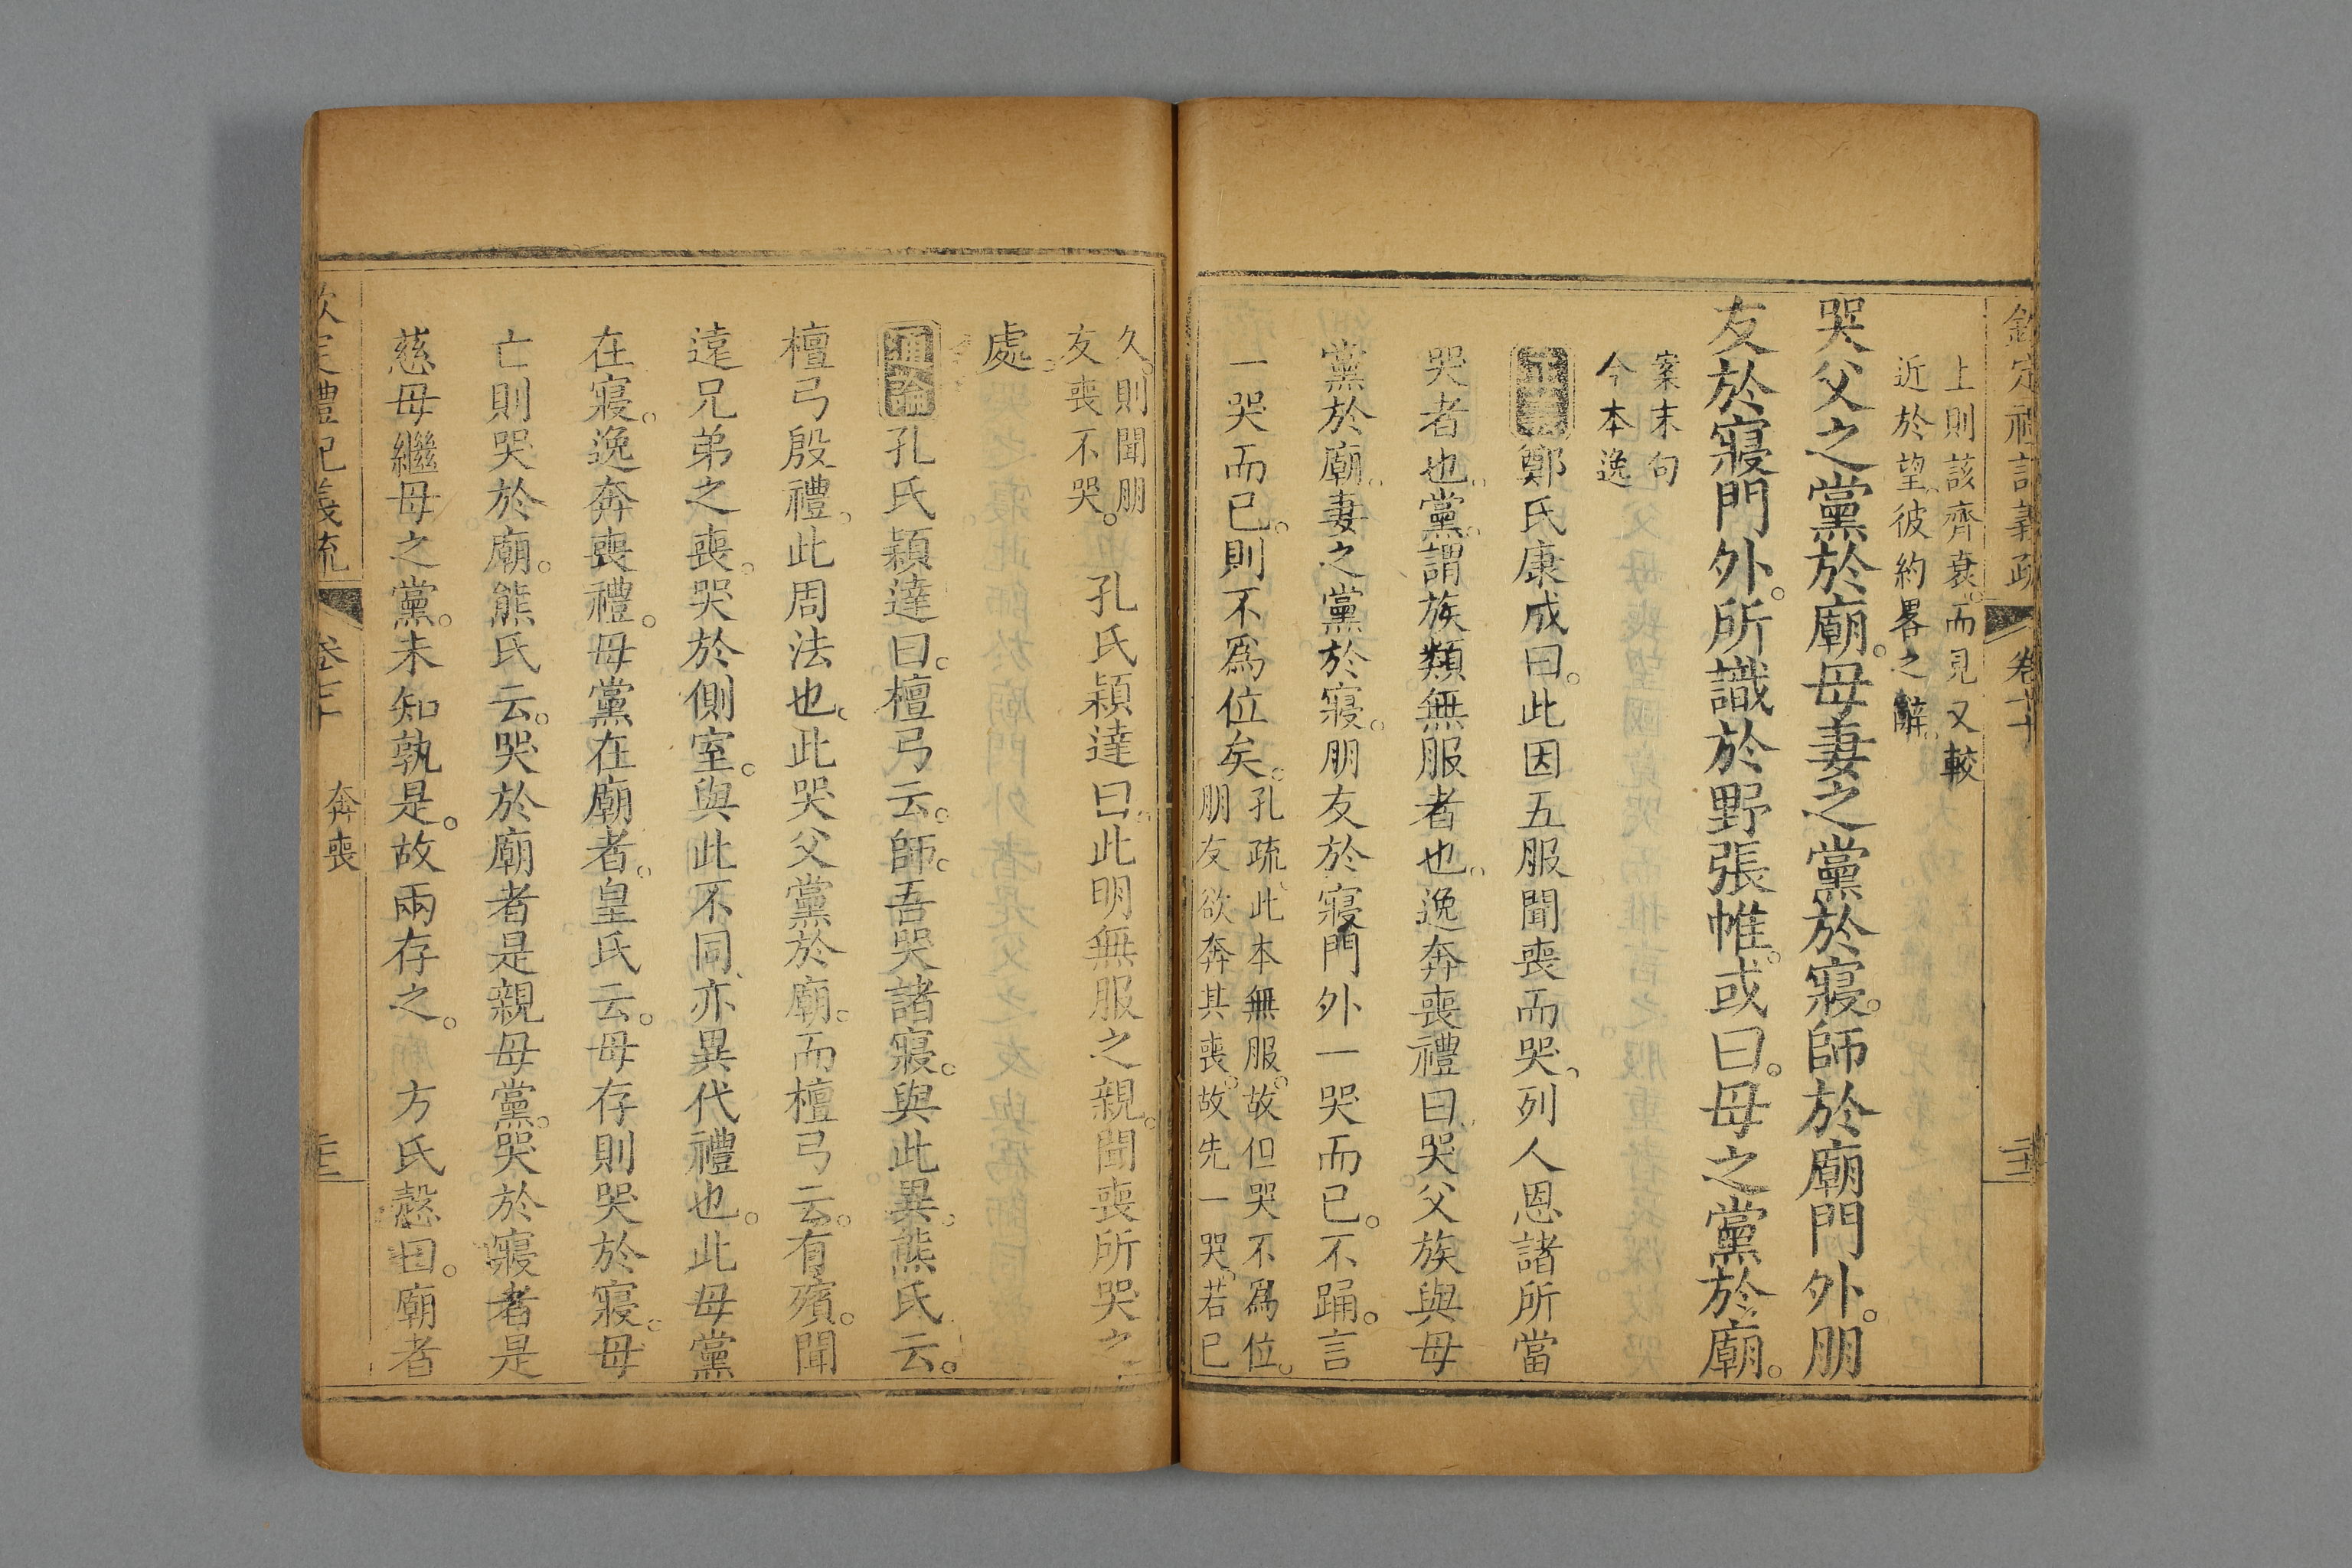 欽定禮記義疏 卷七十
上則該齊衰而見又較
近於望彼約畧之辭
哭父之黨於廟。母妻之黨於寢。師於廟門外。朋
友於寢門外。所識於野張帷。或曰。母之黨於廟。
案末句
今本逸
正義鄭氏康成曰。此因五服聞喪而哭、列人恩諸所當
哭者也。黨。謂族類無服者也。逸奔喪禮曰。哭父族與母
黨於廟。妻之黨於寢。朋友於寢門外一哭而已。不踊。言
一哭而已。則不爲位矣。
孔疏此本無服。故但哭不爲位。
朋友欲奔其喪。故先一哭。若已
久。則聞朋
友喪不哭。
孔氏穎達曰。此明無服之親。聞喪所哭之
處。
通論孔氏穎達曰。檀弓云。師。吾哭諸寢。與此異。熊氏云。
檀弓殷禮。此周法也。此哭父黨於廟。而檀弓云。有殯。聞
遠兄弟之喪。哭於側室。與此不同、亦異代禮也。此母黨
在寢。逸奔喪禮。母黨在廟者。皇氏云。母存則哭於寢。母
亡則哭於廟。熊氏云。哭於廟者是親母黨。哭於寢者是
慈母繼母之黨。未知孰是。故兩存之。 方氏愨曰。廟者
欽定禮記義疏 卷七十 奔喪